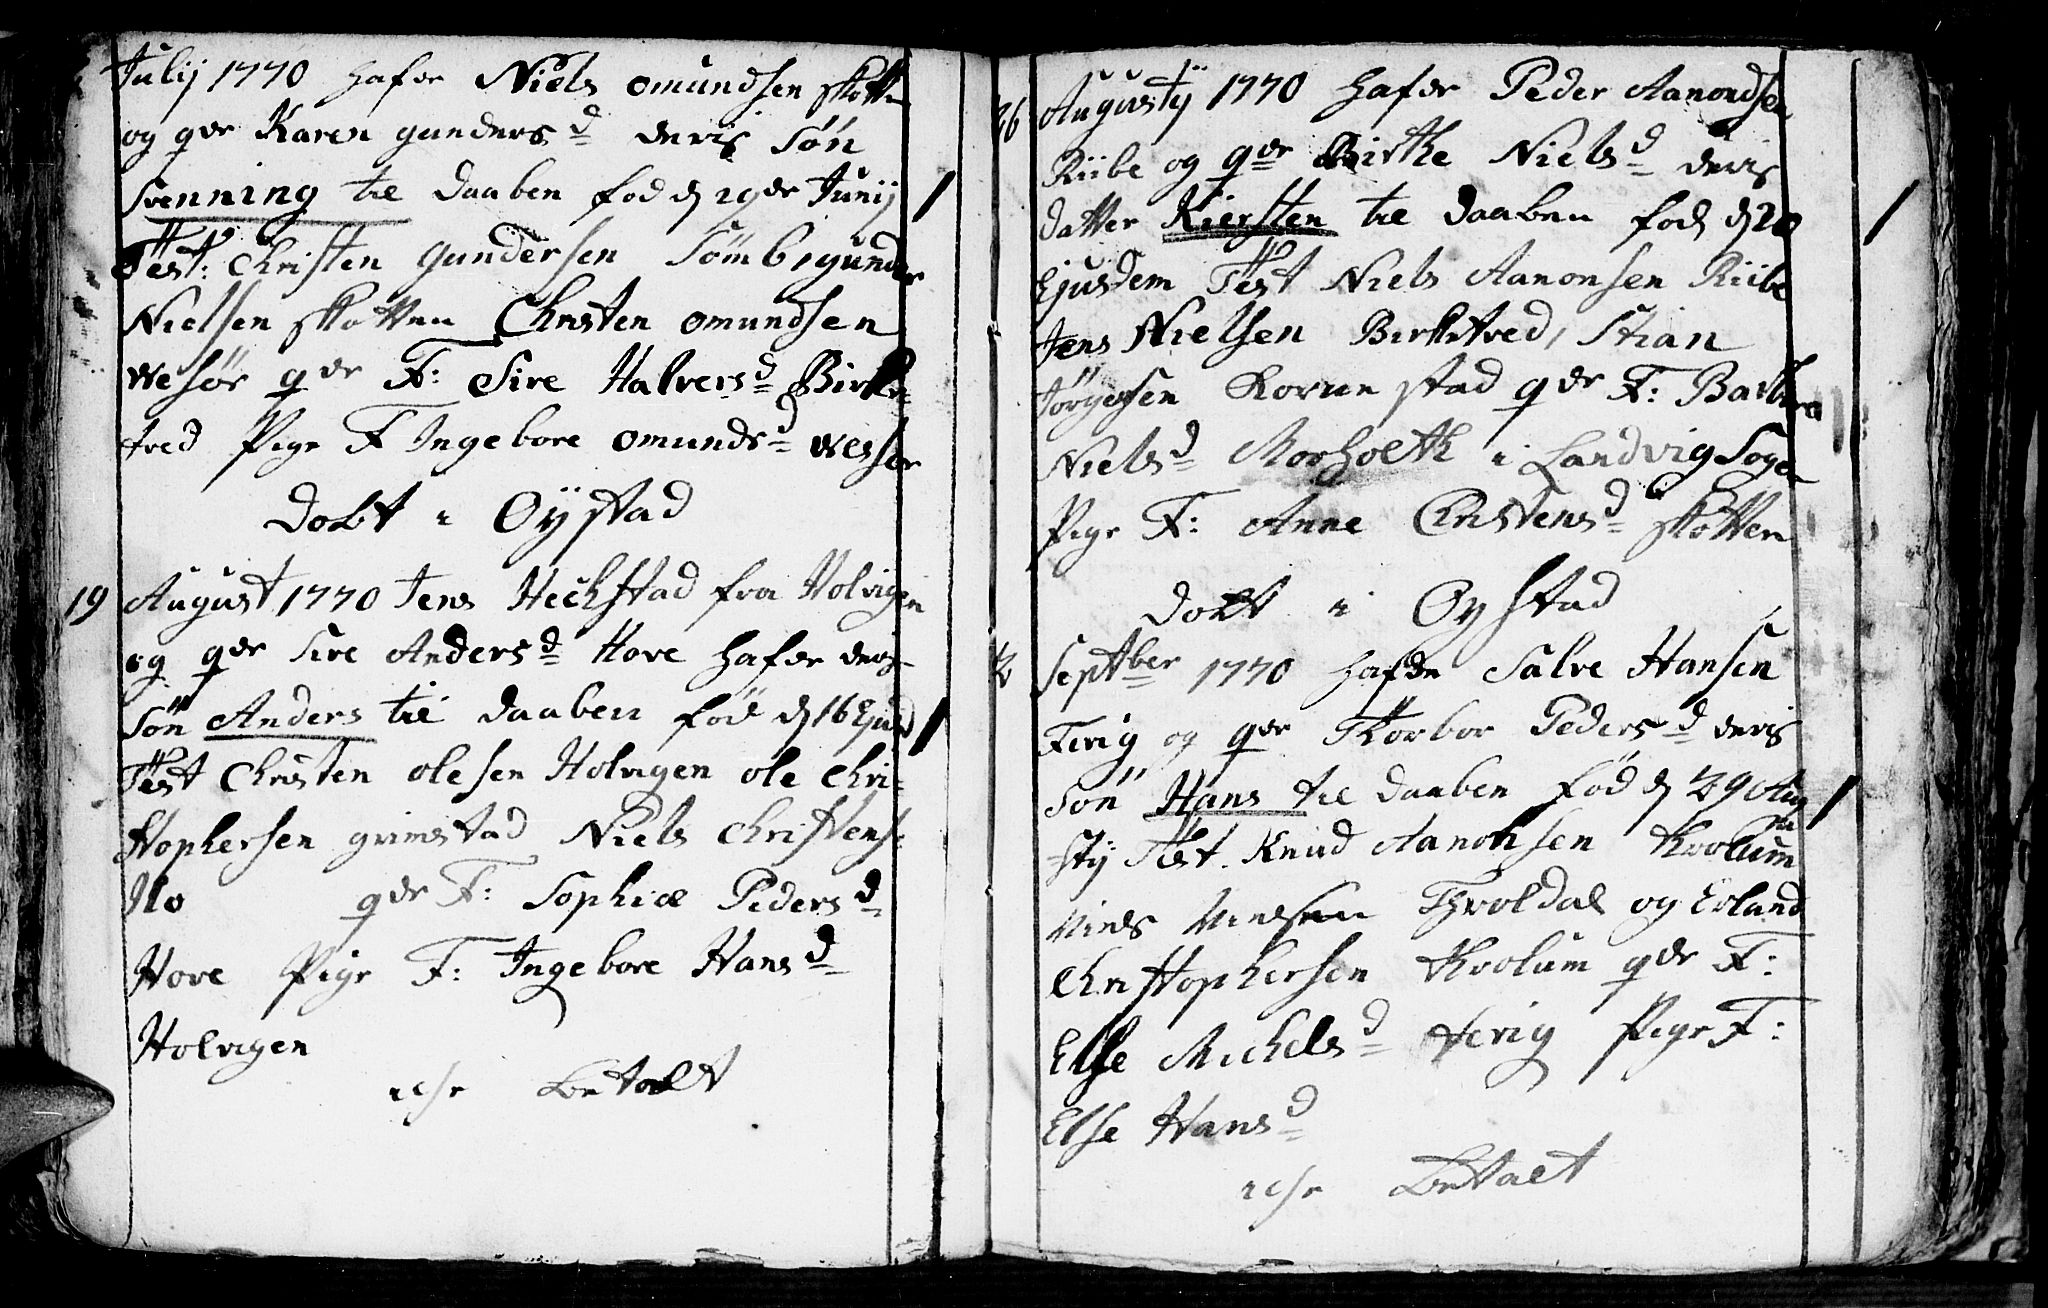 Julij 1770 hafer Niels omundsen skotten
og qver Karen gunders d deris søn
Svenning til daaben fød d 29de Junij
Test: Christen gundersen Sømb: gunder
Nielsen skotten Christen omundsen
wesør qver F: Sire Halvers d Birke-
tved Pige F Ingebore omunds d wesør
dobt i Oÿstad
19 August 1770 Jens Heckstad fra Holvigen
og qver Sire Anders d Hove hafer deris
søn Anders til daaben fød d 16 Ejusd
Test Christen olesen Holvigen ole Chri-
stophersen grimstad Niels Christens:
Mo qver F: Sophiæ Peders d
Hove Pige F: Ingebore Hans d
Holvigen
icke betalt
26 Augustÿ 1770 hafer Peder Aanondsen
Riibe og qver Birthe Niels d deris
datter Kiersten til daaben fød d 20
Ejusdem Test Niels Aanonsen Riibe
Jens Nielsen Birketved, Stian
Jörgensen stad qver F: Barbra
Niels d Morholth i Landvig Sogn
Pige F: Anne Christens d skotten
dobt i Oystad
Septber 1770 hafde Salve Hansen
Ferig og qver Thorbor Peders d deris
Søn Hans til daaben fød d 29 Augu
sty Test. Knud Aanonsen Kroolum
Niels Nielsen Groldal og Erland
Christophersen Kroolum qver F:
Else Michels d Ferig Pige F:
Else Hans d
icke Betalt